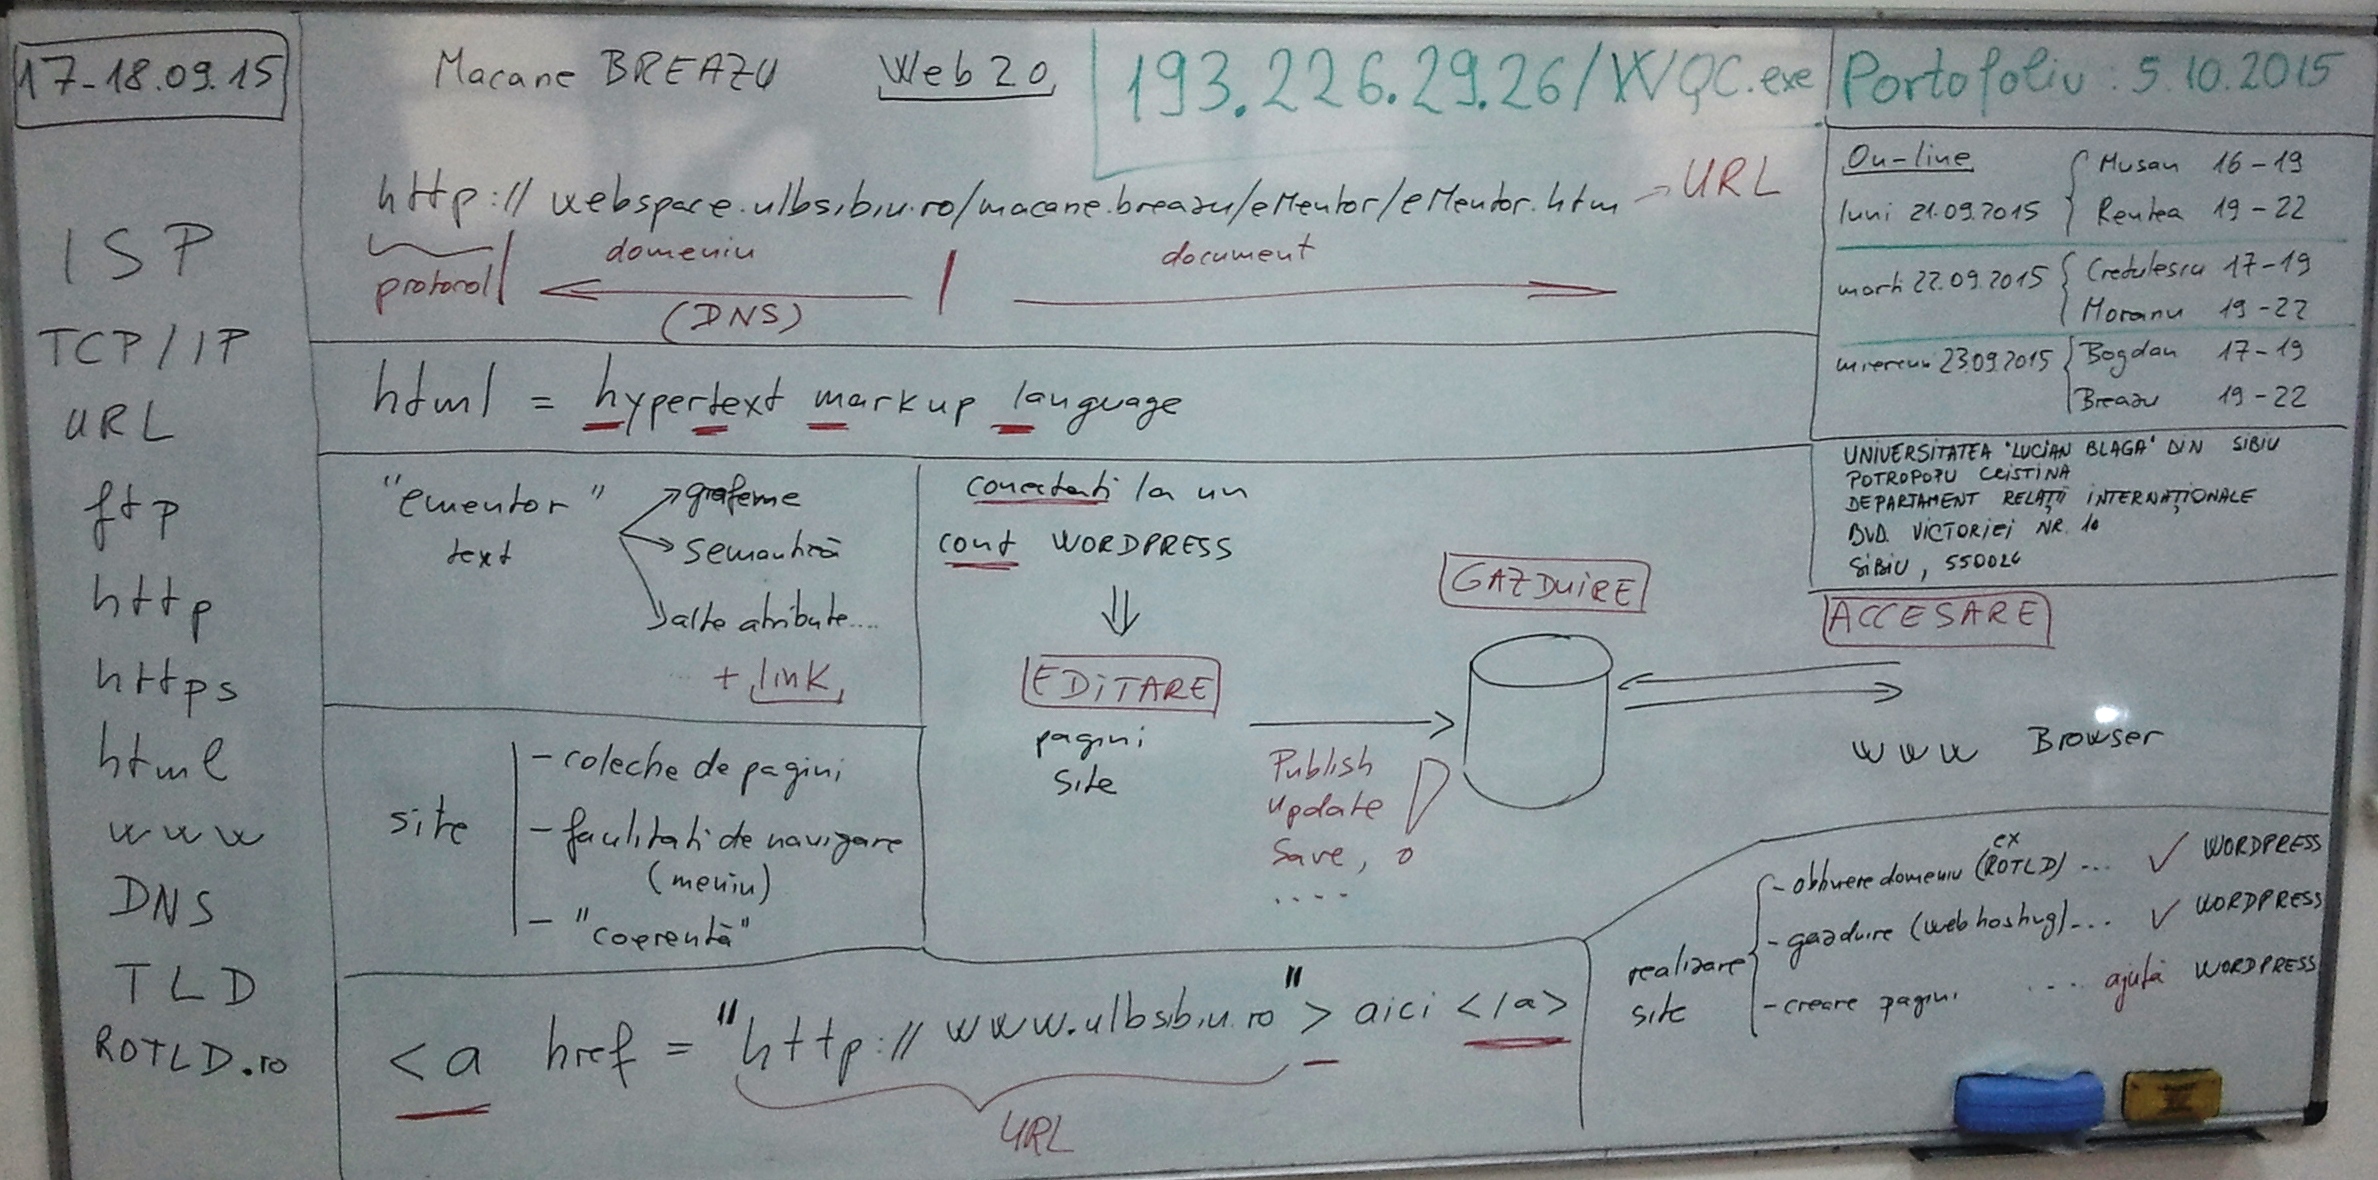 17-18.09.15
Macane BREAZU Web 2.0 193.226.29.26/WQC.exe
Portofoliu : 5.10.2015
ISP
TCP/IP
URL
ftp
http
https
html
www
DNS
TLD
ROTLD.ro
http://webspace.ulbsibiu.ro/macane.breazu/eMentor/eMentor.htm → URL
protocol domeniu document
(DNS)
html = hypertext markup language
On-line
luni 21.09.2015 Musan 16-19
Rentea 19-22
marti 22.09.2015 Cretulescu 17-19
Moranu 19-22
miercuri 23.09.2015 Bogdan 17-19
Breazu 19-22
UNIVERSITATEA "LUCIAN BLAGA" DIN SIBIU
POTROPOPU CRISTINA
DEPARTAMENT RELAȚII INTERNAȚIONALE
BVD. VICTORIEI NR. 10
SIBIU, 550024
"ementor"
text
grafeme
semantică
alte atribute....
+ link
site
- colectie de pagini
- facilitati de navigare
(meniu)
- "coerentă"
conectati la un
cont WORDPRESS
EDITARE
pagini
site
Publish
Update
Save,
....
GAZDUIRE
ACCESARE
www Browser
<a href = "http://www.ulbsibiu.ro"> aici </a>
URL
realizare
site
ex
- obtinere domeniu (ROTLD) ... ✓ WORDPRESS
- gazduire (web hosting)... ✓ WORDPRESS
- creare pagini ... ajută WORDPRESS